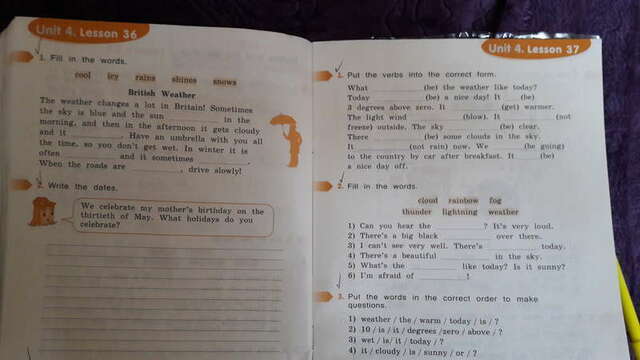 Unit 4. Lesson 36
1. Fill in the words.
cool icy rains shines snows
British Weather
The weather changes a lot in Britain! Sometimes
the sky is blue and the sun ________ in the
morning, and then in the afternoon it gets cloudy
and it ________. Have an umbrella with you all
the time, so you don't get wet. In winter it is
often ________ and it sometimes ________.
When the roads are ________, drive slowly!
2. Write the dates.
We celebrate my mother's birthday on the
thirtieth of May. What holidays do you
celebrate?
Unit 4. Lesson 37
1. Put the verbs into the correct form.
What ________ (be) the weather like today?
Today ________ (be) a nice day! It ____ (be)
3 degrees above zero. It ________ (get) warmer.
The light wind ________ (blow). It ________ (not
freeze) outside. The sky ________ (be) clear.
There ________ (be) some clouds in the sky.
It ________ (not rain) now. We ________ (be going)
to the country by car after breakfast. It ____ (be)
a nice day off.
2. Fill in the words.
cloud rainbow fog
thunder lightning weather
1) Can you hear the ________? It's very loud.
2) There's a big black ________ over there.
3) I can't see very well. There's ________ today.
4) There's a beautiful ________ in the sky.
5) What's the ________ like today? Is it sunny?
6) I'm afraid of ________!
3. Put the words in the correct order to make
questions.
1) weather / the / warm / today / is / ?
2) 10 / is / it / degrees / zero / above / ?
3) wet / is / it / today / ?
4) it / cloudy / is / sunny / or / ?